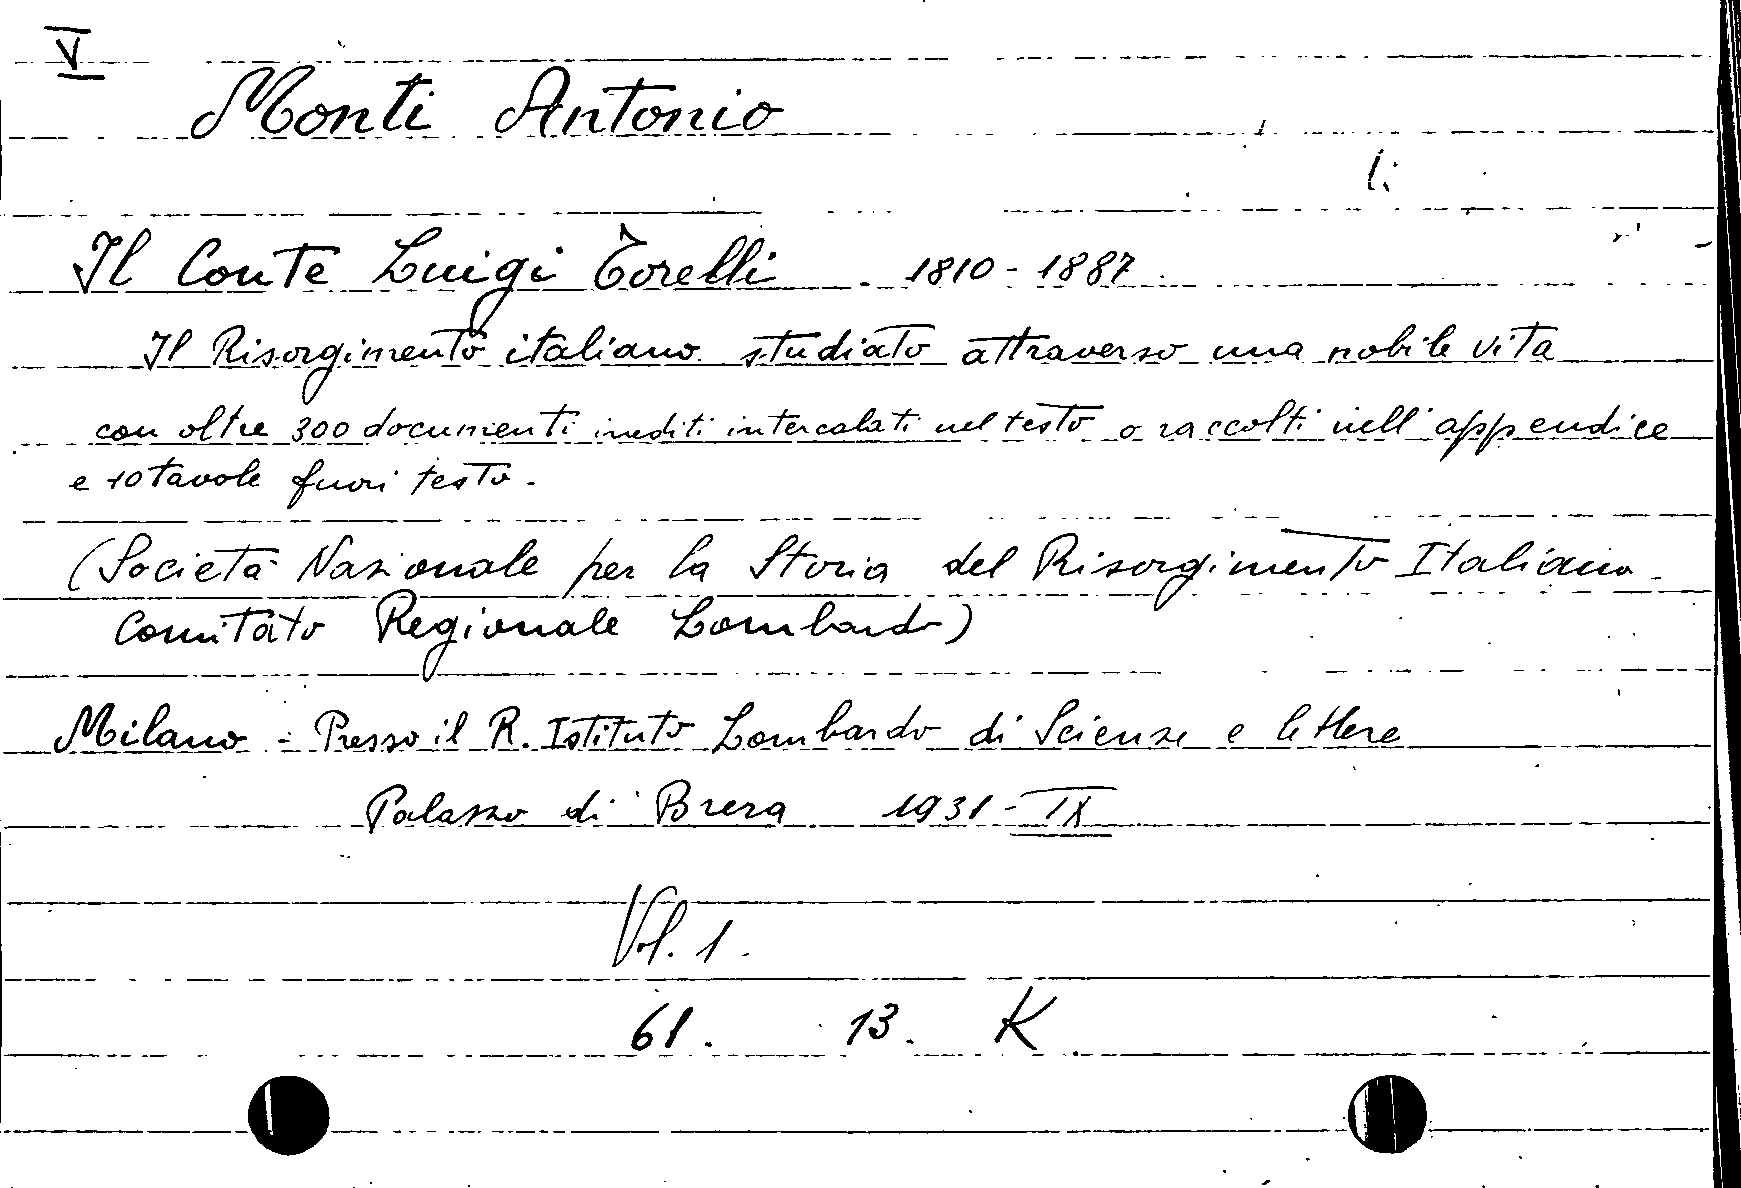 V
Monti Antonio
Il Conte Luigi Torelli . 1810 - 1887.
Il Risorgimento italiano studiato attraverso una nobile vita
con oltre 300 documenti inediti intercalati nel testo o raccolti nell'appendice
e 10 tavole fuori testo.
(Società Nazionale per la Storia del Risorgimento Italiano -
Comitato Regionale Lombardo)
Milano - Presso il R. Istituto Lombardo di Scienze e lettere
Palazzo di Brera 1931 - IX
Vol. 1.
61. 13. K